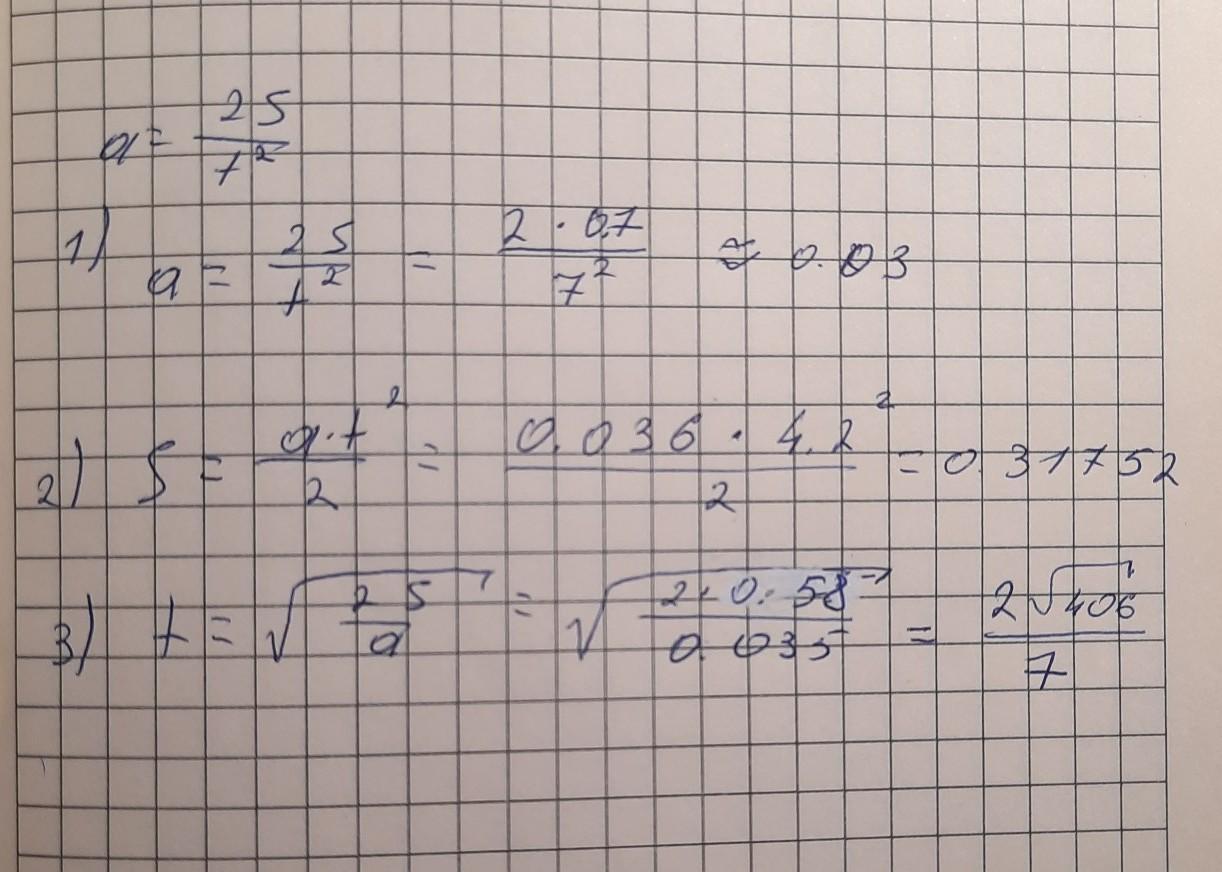 a = 2S / t²
1) a = 2S / t² = 2 · 0.7 / 7² ≈ 0.03
2) S = a·t² / 2 = 0.036 · 4.2² / 2 = 0.31752
3) t = √(2S / a) = √(2 · 0.58 / 0.035) = 2√406 / 7